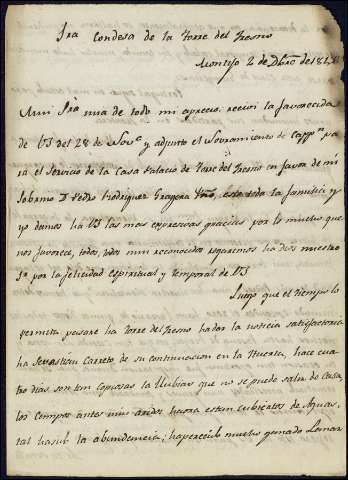 Sra Condesa de la Torre del Fresno
Montijo 2 de Dbre de 181
Mui Sra mia de todo mi aprecio. recivi la favorecida
de VS del 28 de Nove y adjunto el Novramiento de Cappn pa
ra el servicio de la Casa Palacio de Torre del Fresno en favor de mi
sobrino Dn Pedro Rodriguez Gragera esta toda la familia y
yo damos ha VS las mas expresivas gracias por lo mucho que
nos favorece, todos todos mui reconocidos rogaremos ha Dios nuestro
Sr por la felicidad espiritual y temporal de VS
Luego que el tiempo lo
permita pasare ha Torre del Fresno hadar la noticia satisfactoria
ha Sevastian Carreto de su continuacion en la Huerta, hace cua
tro dias son tan copiosas la llubias que no se puede salir de Casa,
los campos antes mui aridos haora estan cubiertos de Aguas,
tal ha sido la abundancia; haperecido mucho ganado Lanar